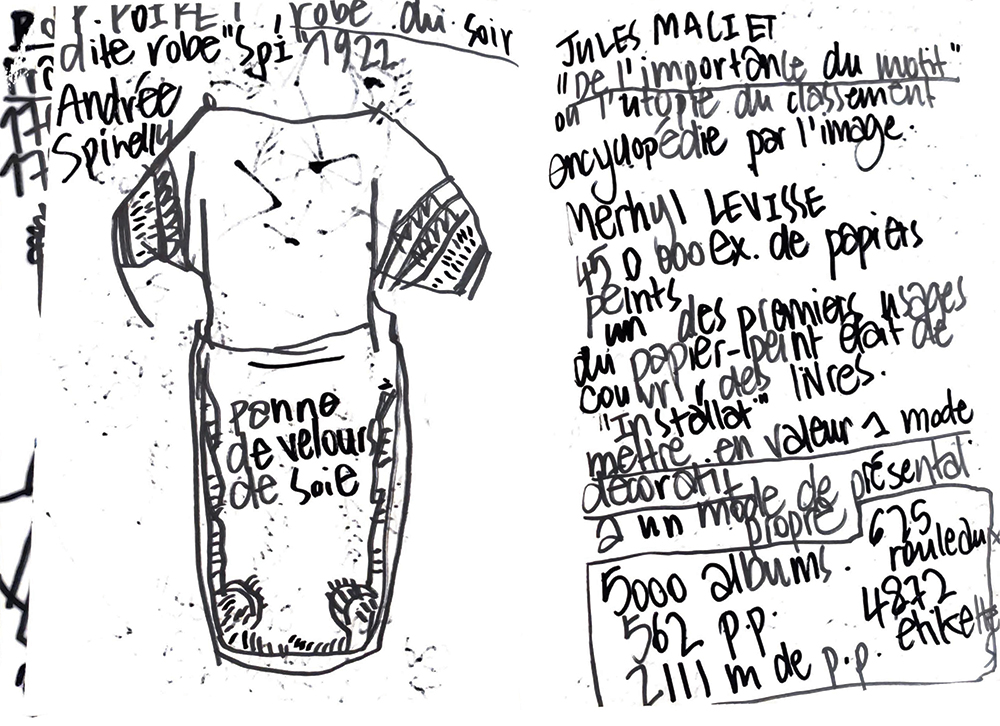 P. POIRET robe du soir
dite robe "Spi" 1922
Andrée
Spinelly
panne
de velours
de soie
JULES MACIET
"De l'importance du motif"
ou l'utopie du classement
encyclopédie par l'image.
Merhyl LEVISSE
45 0 000 ex. de papiers
peints
un des premiers usages
du papier-peint était de
couvrir des livres.
"Installat°"
mettre en valeur 1 mode
décoratif
a un mode de présentat°
propre
5000 albums.
562 p.p.
2111 m de p.p.
625
rouleaux
4872
étikette